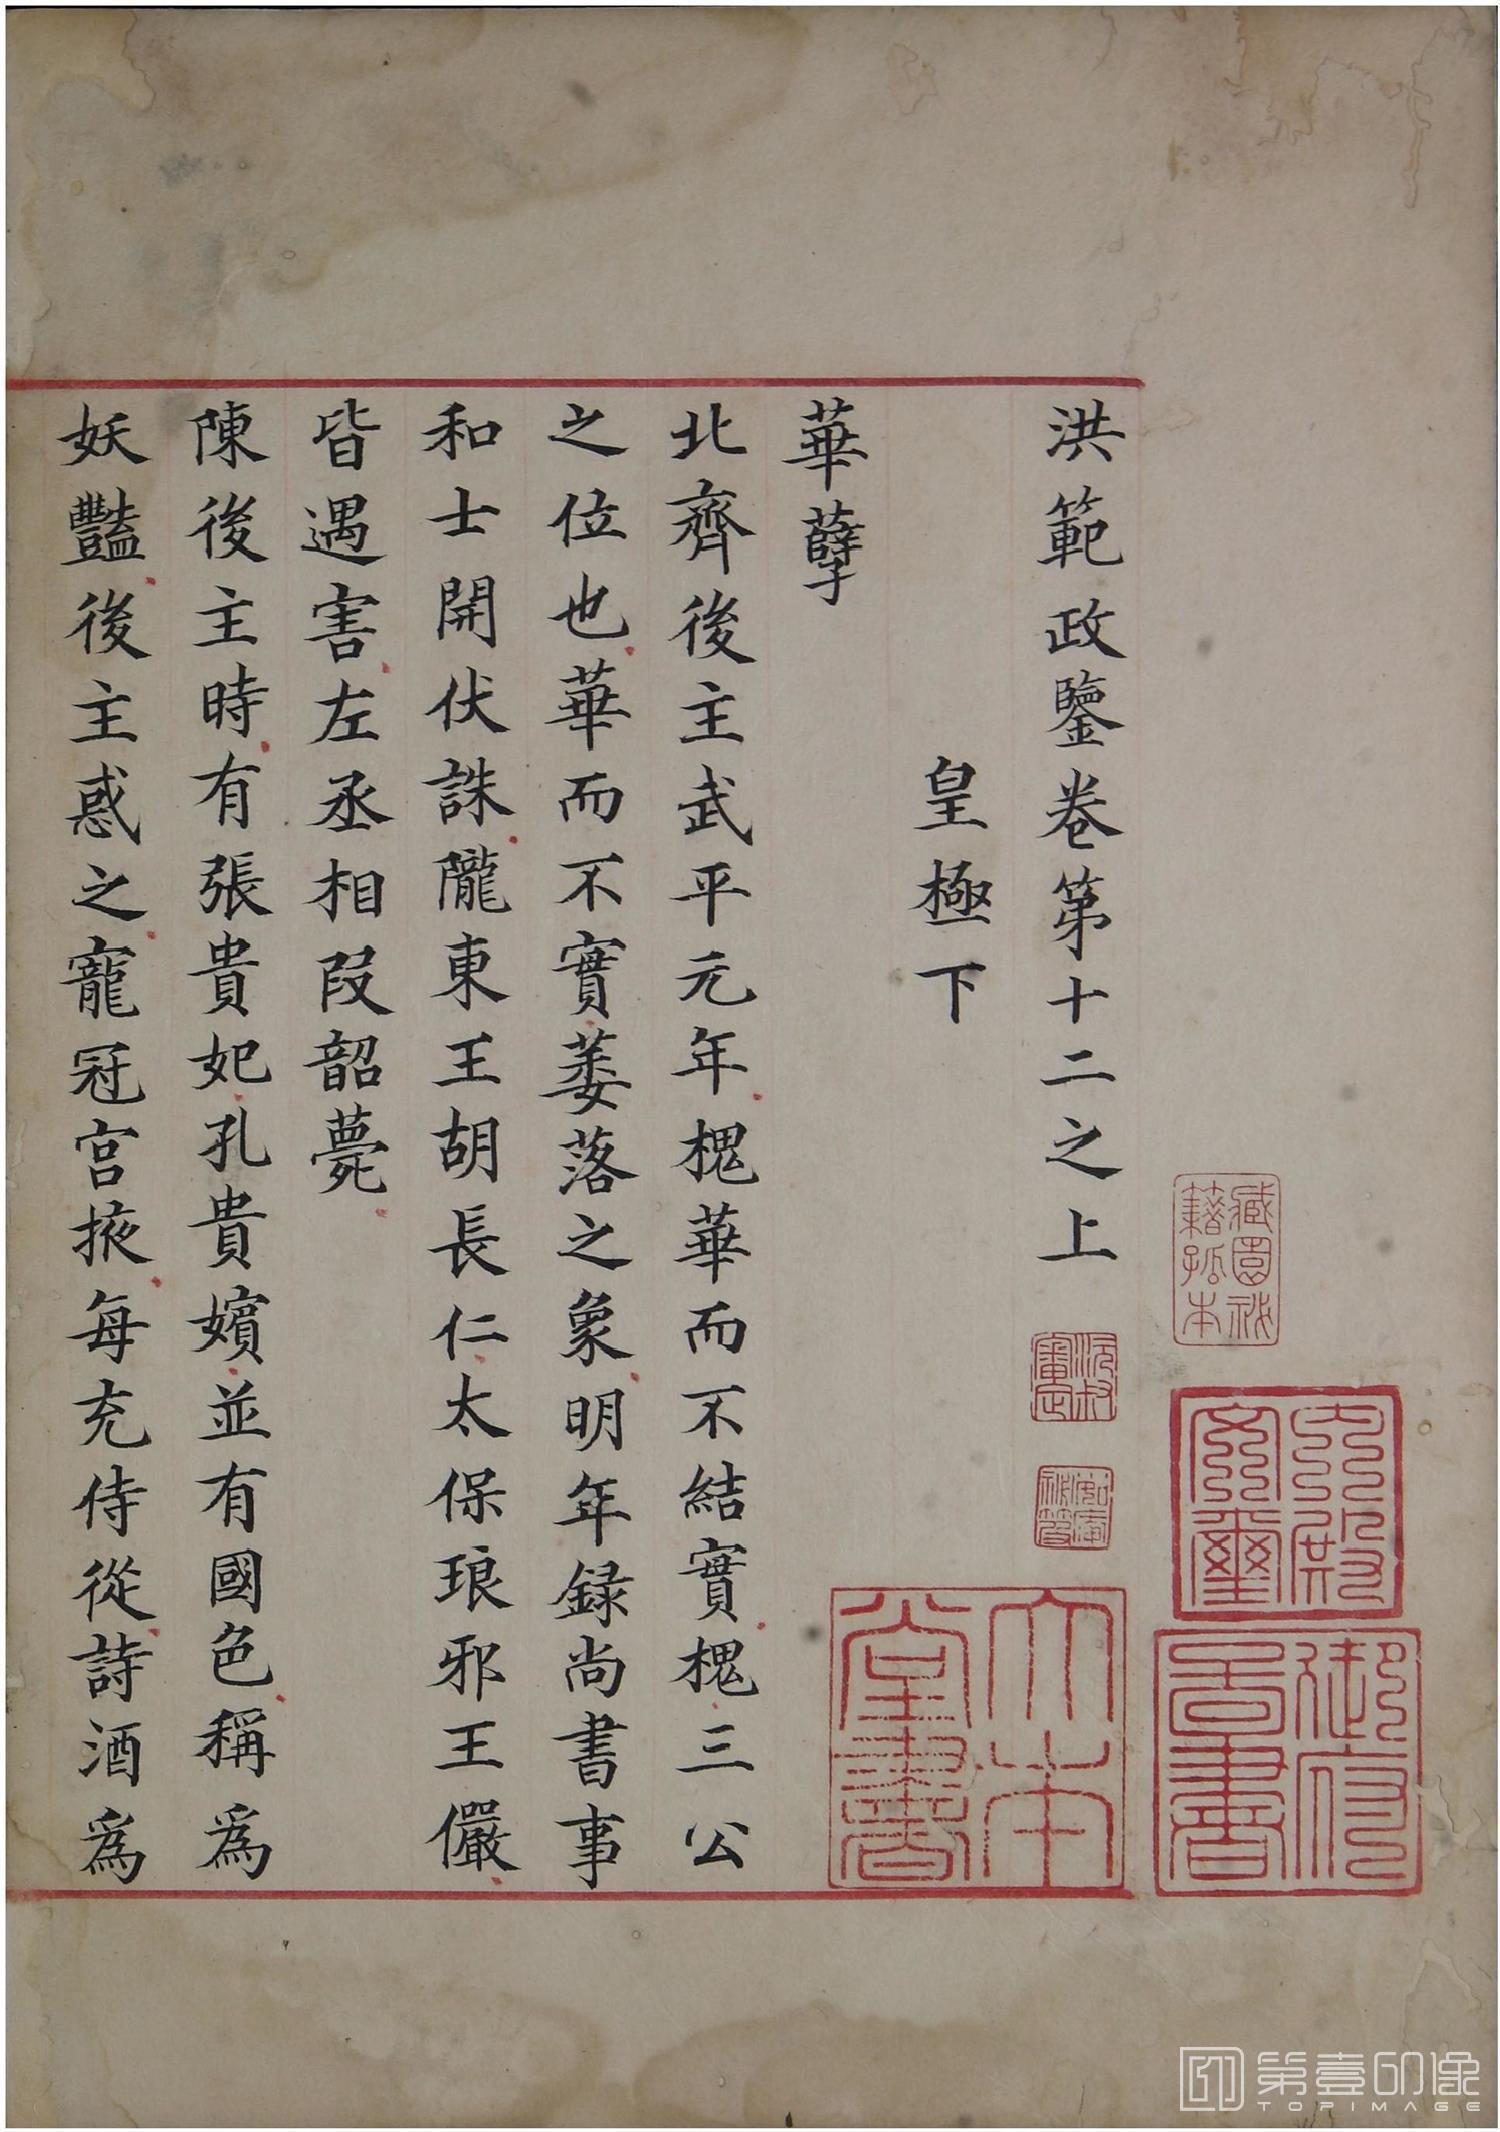 洪範政鑒卷第十二之上
皇極下
華孽
北齊後主武平元年槐華而不結實槐三公
之位也華而不實萎落之象明年録尚書事
和士開伏誅隴東王胡長仁太保琅邪王儼
皆遇害左丞相段韶薨
陳後主時有張貴妃孔貴嬪並有國色稱為
妖豔後主惑之寵冠宮掖每充侍從詩酒為
藏園祕籍孤本
沅叔審定
內殿文璽
御府圖書
大本堂書
第壹印像
TOPIMAGE